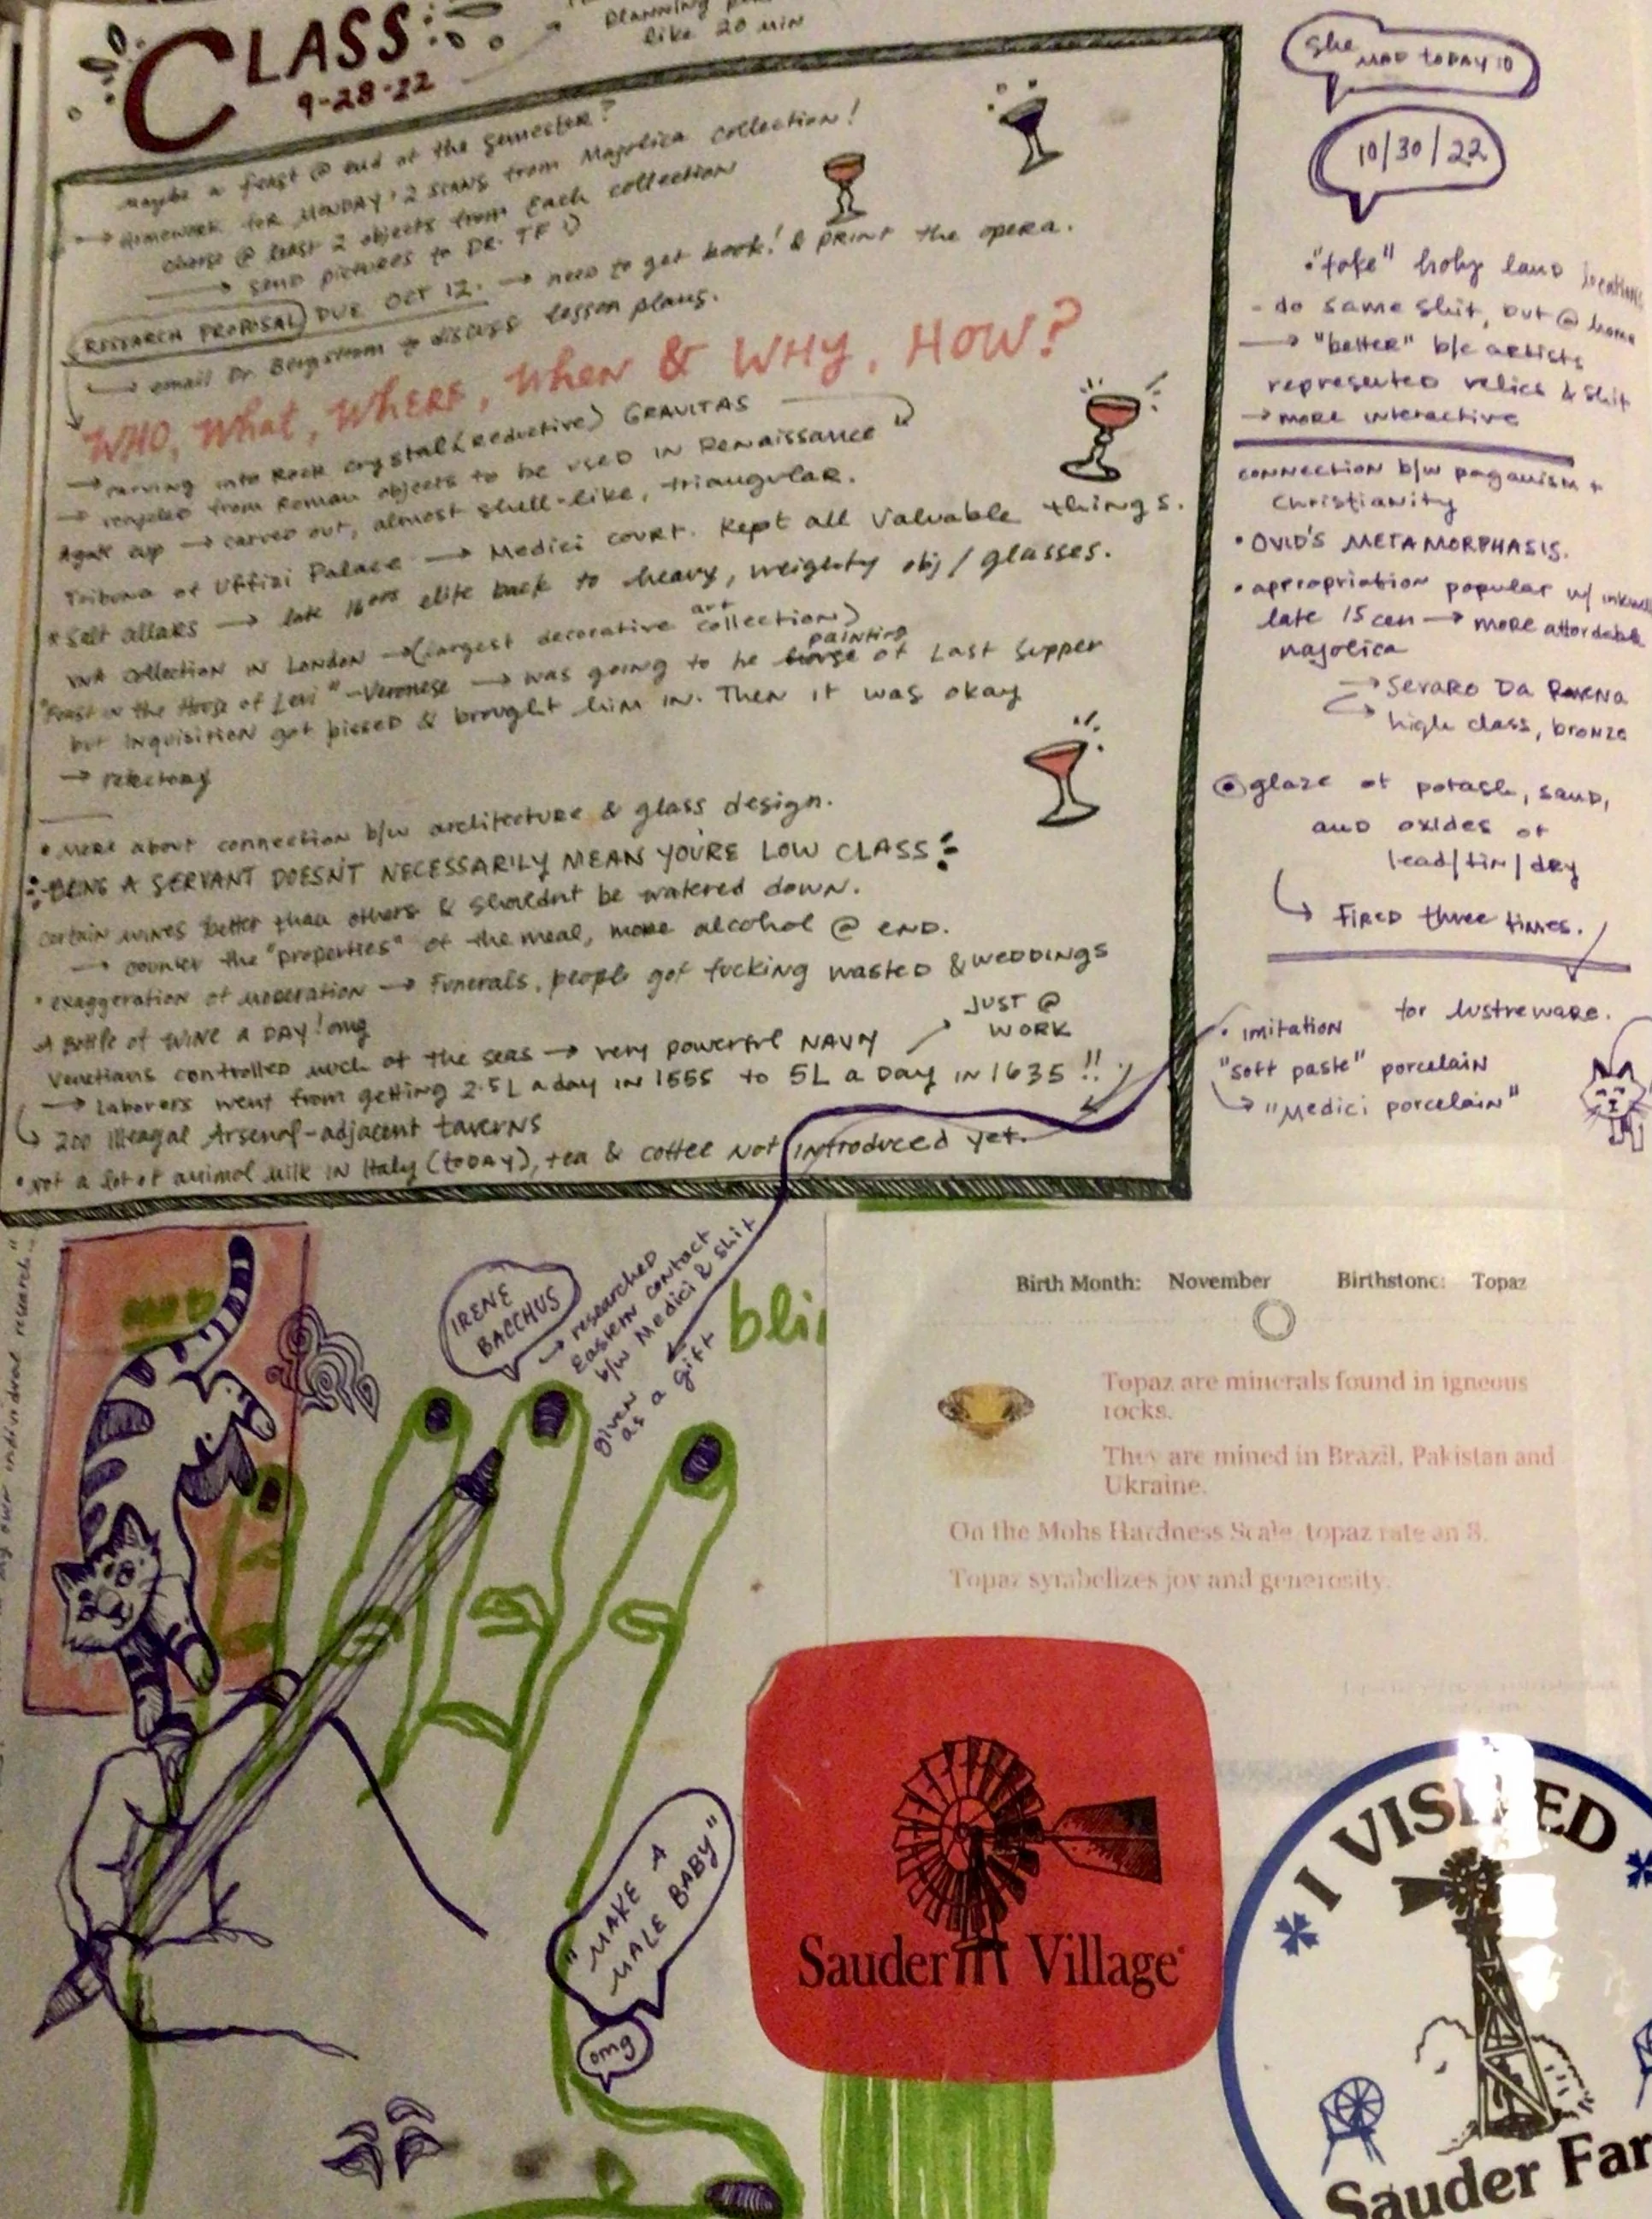 CLASS
9-28-22
Planning
like 20 min
maybe a feast @ end of the semester?
→ Homework for MONDAY: 2 scans from Majolica collection!
choose @ least 2 objects from each collection
→ send pictures to DR. TF :)
RESEARCH PROPOSAL DUE OCT 12. → need to get book! & PRINT the opera.
→ email Dr. Bergstrom to discuss lesson plans.
WHO, What, WHERE, When & WHY, HOW?
→ carving into Rock crystal (reductive) GRAVITAS
→ recycled from Roman objects to be used in Renaissance
Agate cup → carved out, almost shell-like, triangular.
Tribuna of Uffizi Palace → Medici court. Kept all valuable things.
* Salt allars → late 16ors elite back to heavy, weighty obj/glasses.
V&A collection in London → (largest decorative art collection)
"Feast in the House of Levi" - Veronese → was going to be painting of Last Supper
but Inquisition got pissed & brought him in. Then it was okay
→ refectory
• More about connection b/w architecture & glass design.
BEING A SERVANT DOESN'T NECESSARILY MEAN YOU'RE LOW CLASS
certain wines better than others & shouldn't be watered down.
→ counter the "properties" of the meal, more alcohol @ end.
• exaggeration of moderation → Funerals, people got fucking wasted & WEDDINGS
A Bottle of WINE A DAY! omg
Venetians controlled much of the seas → very powerful NAVY
JUST @
WORK
→ laborers went from getting 2.5L a day in 1555 to 5L a Day in 1635 !!
↳ 200 illeagal Arsenal-adjacent taverns
• not a lot of animal milk in Italy (today), tea & coffee not introduced yet.
she MAD TODAY
10/30/22
• "fake" holy land
- do same shit, but @ home
→ "better" b/c artists
represented relics & shit
→ more interactive
connection b/w paganism +
Christianity
• OVID'S METAMORPHASIS.
• appropriation popular w/
late 15 cen → more affordable
majolica
→ Severo Da Ravena
→ high class, bronze
glaze of potash, sand,
and oxides of
lead/tin/dry
↳ Fired three times.
for lustreware.
• imitation
"soft paste" porcelain
↳ "Medici porcelain"
my own individual research"
IRENE
BACCHUS
→ researched
Eastern contact
b/w Medici & shit
Given
as a gift
bli
Birth Month: November Birthstone: Topaz
Topaz are minerals found in igneous
rocks.
They are mined in Brazil, Pakistan and
Ukraine.
On the Mohs Hardness Scale, topaz rate an 8.
Topaz symbolizes joy and generosity.
"MAKE A
MALE BABY"
omg
Sauder Village
I VISITED
Sauder Far